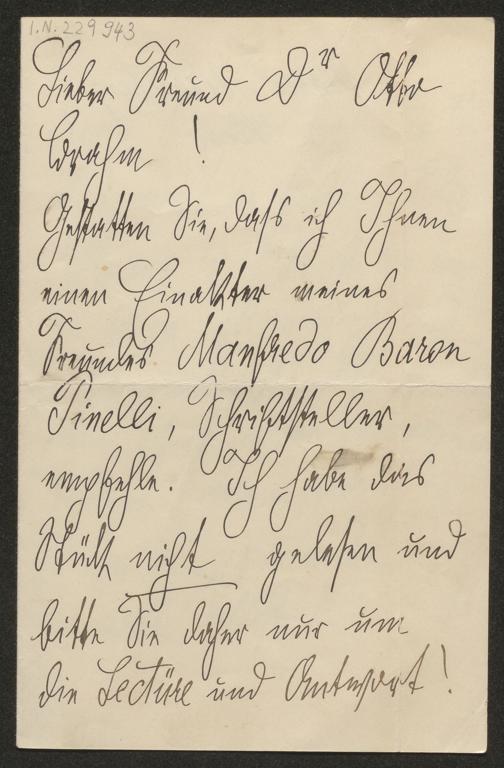 I.N. 229943
Lieber Freund Dr Otto
Brahm !
Gestatten Sie, dass ich Ihnen
einen Einakter meines
Freundes Manfredo Baron
Pinelli, Schriftsteller,
empfehle. Ich habe das
Stück nicht gelesen und
bitte Sie daher nur um
die Lectüre und Antwort!